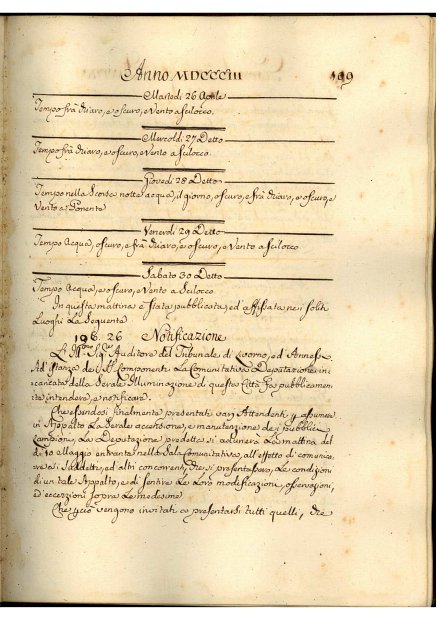 Anno MDCCCIII 199
Martedi 26 Aprile
Tempo frà chiaro, e oscuro, e Vento a Scilocco
Mercoldi 27 Detto
Tempo frà chiaro, e oscuro, e Vento a Scilocco
Giovedi 28 Detto
Tempo nella Scorsa notte acqua, il giorno, oscuro, e frà chiaro, e oscuro, e
Vento a Ponente
Venerdi 29 Detto
Tempo Acqua, oscuro, e frà chiaro, e oscuro, e Vento a Scilocco
Sabato 30 Detto
Tempo Acqua, e oscuro, e Vento a Scilocco
In questa mattina è stata pubblicata, ed affissata nei soliti
Luoghi La Seguente
Notificazione
Auditore del Tribunale di Livorno, ed Annessi
Ad'Istanza dei Componenti La Comunitativa Deputazione in=
caricata della Serale Illuminazione di questa Città fà pubblicamen
te intendere, e notificare
Che essendosi finalmente presentati varj Attendenti p assumere
in Appalto La Serale accensione, e manutenzione dei pubblici
Lampioni, La Deputazione predetta si adunerà La mattina del
dì 10 Maggio entrante nella Sala Comunitativa, all'effetto di comunica
re ai Suddetti, ed altri concorrenti, che si presentassero, Le condizioni
di un tale Appalto, e di sentire Le Loro modificazioni, osservazioni,
ed eccezzioni sopra Le medesime
Che perciò vengono invitati a presentarsi tutti quelli, che